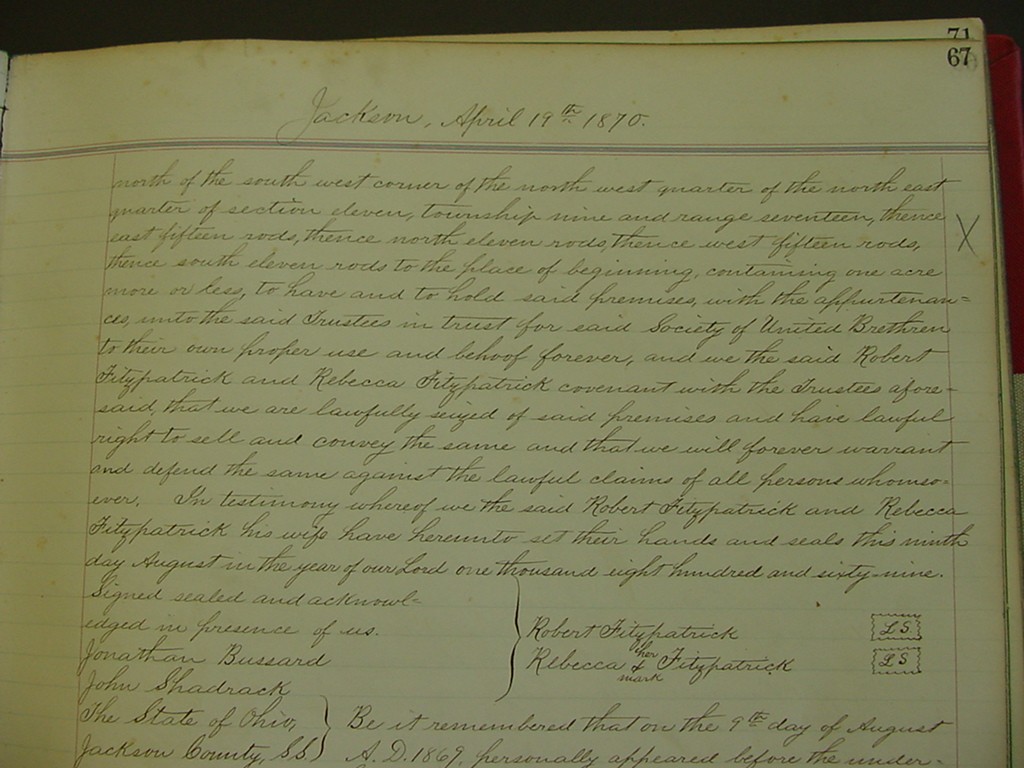 71
67
Jackson, April 19th 1870.
north of the south west corner of the north west quarter of the north east
quarter of section eleven, township nine and range seventeen, thence
east fifteen rods, thence north eleven rods, thence west fifteen rods,
thence south eleven rods to the place of beginning, containing one acre
more or less, to have and to hold said premises, with the appurtenan=
ces, unto the said Trustees in trust for said Society of United Brethren
to their own proper use and behoof forever, and we the said Robert
Fitzpatrick and Rebecca Fitzpatrick covenant with the Trustees afore=
said, that we are lawfully seized of said premises and have lawful
right to sell and convey the same and that we will forever warrant
and defend the same against the lawful claims of all persons whomso=
ever. In testimony whereof we the said Robert Fitzpatrick and Rebecca
Fitzpatrick his wife have hereunto set their hands and seals this ninth
day August in the year of our Lord one thousand eight hundred and sixty-nine.
Signed sealed and acknowl=
edged in presence of us.
Jonathan Bussard
John Shadrack
Robert Fitzpatrick L S
Rebecca her x mark Fitzpatrick L S
The State of Ohio,
Jackson County, S.S.
Be it remembered that on the 9th day of August
A.D. 1869, personally appeared before the under=